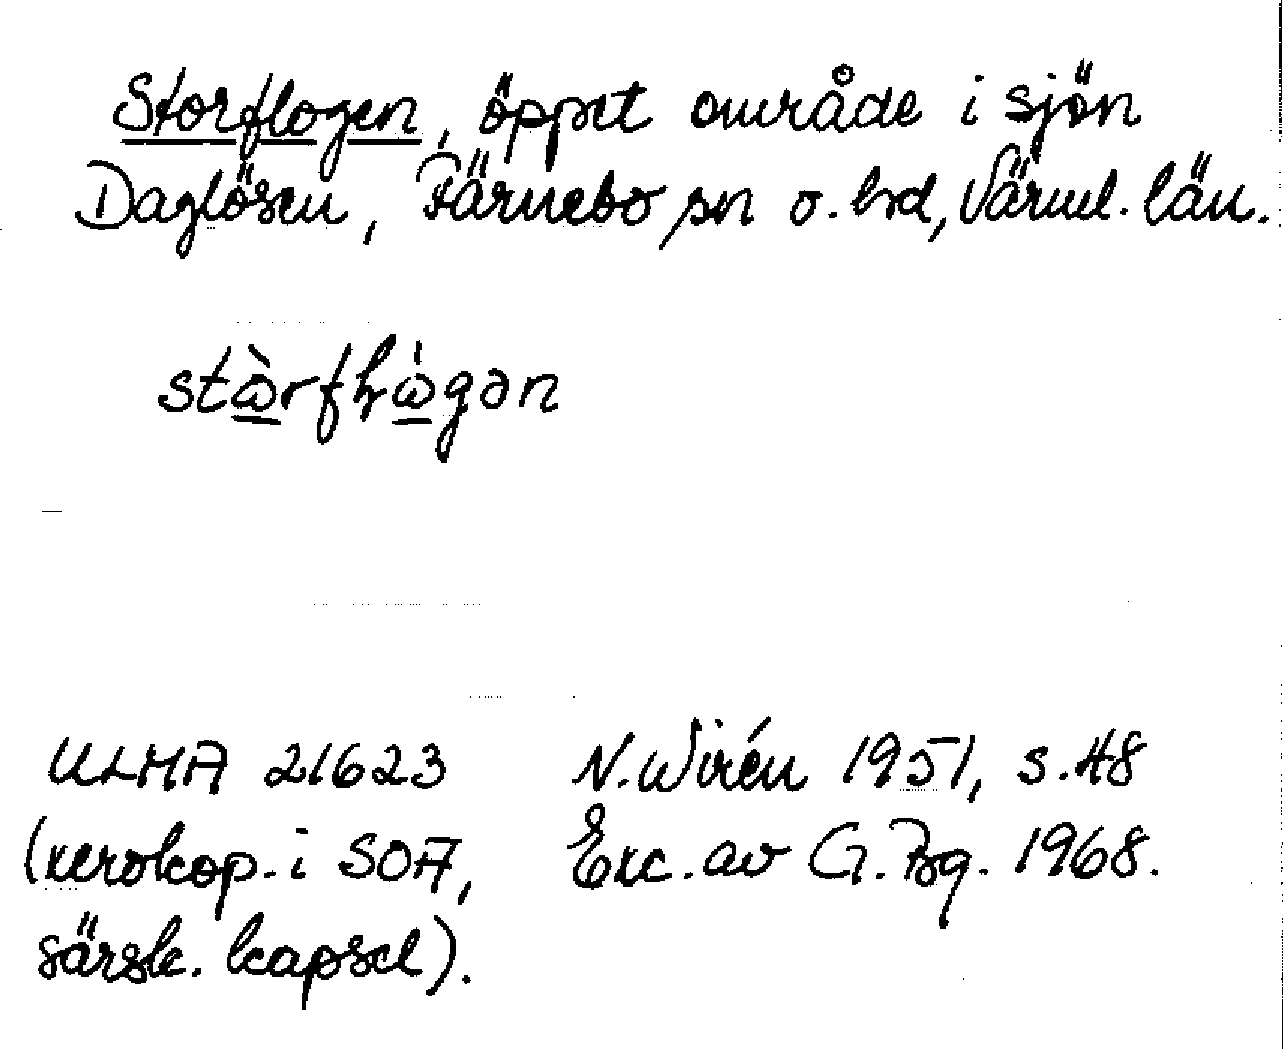 Storflogen, öppet område i sjön
Daglösen, Färnebo sn o. hd, Värml. län.
stὼ̲rfɫώ̲gən
ULMA 21623 N. Wirén 1951, s. 48
(xerokop. i SOA, Exc. av G. Bg. 1968.
särsk. kapsel).